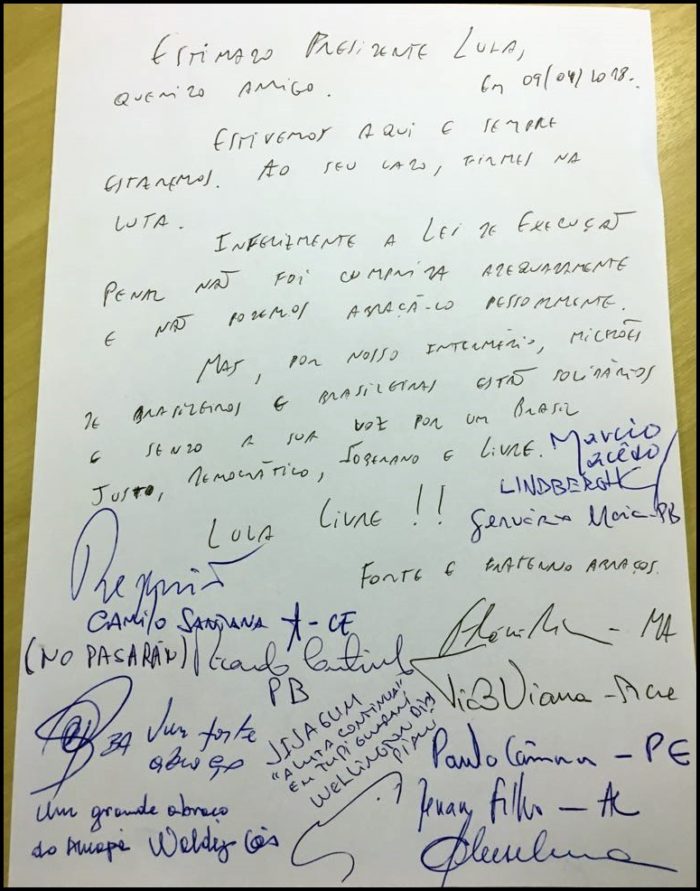 ESTIMADO PRESIDENTE LULA,
QUERIDO AMIGO.
Em 09/04/2018.
ESTIVEMOS AQUI E SEMPRE
ESTAREMOS. AO SEU LADO, FIRMES NA
LUTA.
INFELIZMENTE A LEI DE EXECUÇÃO
PENAL NÃO FOI CUMPRIDA ADEQUADAMENTE
E NÃO PODEMOS ABRAÇÁ-LO PESSOALMENTE.
MAS, POR NOSSO INTERMÉDIO, MILHÕES
DE BRASILEIROS E BRASILEIRAS ESTÃO SOLIDÁRIOS
E SENDO A SUA VOZ POR UM BRASIL
JUSTO, DEMOCRÁTICO, SOBERANO E LIVRE.
Marcio
Macêdo
LINDBERGH
LULA LIVRE!!
Gervásio Maia-PB
FORTE E FRATERNO ABRAÇOS.
Requião
CAMILO SANTANA - CE
(NO PASARÁN) Ricardo Coutinho
PB
Flávio Dino - MA
Tião Viana - Acre
BA Um forte
abraço
JIJAGUM
"A LUTA CONTINUA"
EM TUPI GUARANI
WELLINGTON DIAS
PIAUÍ
Paulo Câmara - PE
Um grande abraço
do Amapá Waldez Góes
Renan Filho - AL